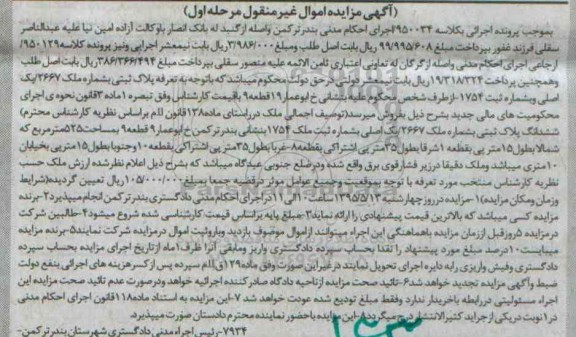 (آگهی مزایده اموال غیر منقول مرحله اول)
بموجب پرونده اجرائی بکلاسه ۹۵۰۰۳۴ اجرای احکام مدنی بندر ترکمن واصله از گنبد له بانک انصار باوکالت آزاده امین نیا علیه عبدالناصر
سقلی فرزند غفور بپرداخت مبلغ ۹۹/۹۹۵/۶۰۸ ریال بابت اصل طلب و مبلغ ۳/۹۸۶/۰۰۰ ریال بابت نیمعشر اجرایی ونیز پرونده کلاسه ۹۵۰۱۲۹/
ارجاعی اجرای احکام مدنی واصله از گرگان له تعاونی اعتباری ثامن الائمه علیه منصور سقلی بپرداخت مبلغ ۳۸۶/۳۶۶/۴۹۴ ریال بابت اصل طلب
وهمچنین پرداخت ۱۹/۳۱۸/۳۲۴ ریال بابت نیمعشر دولتی در حق دولت محکوم میباشد که باتوجه به تعرفه پلاک ثبتی بشماره ملک ۲۶۶۷ یک
اصلی وبشماره ثبت ۱۷۵۴- از طرف شخص محکوم علیه بنشانی خ ابوعمار ۱۹ قطعه ۹ باقیمت کارشناس وفق تبصره ۱ ماده ۳ قانون نحوه ی اجرای
محکومیت های مالی جدید بشرح ذیل بفروش میرسد (توصیف اجمالی ملک در راستای ماده ۱۳۸ قانون اام براساس نظریه کارشناس محترم)
ششدانگ پلاک ثبتی بشماره ملک ۲۶۶۷ یک اصلی بشماره ثبت ملک ۱۷۵۴ بنشانی بندر ترکمن خ ابوعمار ۹ قطعه ۹ بمساحت ۵۲۵ مترمربع که
شمالا بطول ۱۵ متر پی بقطعه ۱ شرقا بطول ۳۵ متر پی اشتراکی بقطعه ۸- غربا بطول ۳۵ متر پی اشتراکی بقطعه ۱۰ وجنوبا بطول ۱۵ متر پی بخیابان
۱۰ متری میباشد وملک دقیقا در زیر فشار قوی برق واقع شده ودر ضلع جنوبی عیدگاه میباشد که بشرح ذیل اعلام نظر شده ارزش ملک حسب
نظریه کارشناس منتخب مورد تعرفه با توجه بموقعیت وجمیع عوامل موثر در قضیه جمعا بمبلغ ۱۰۵/۰۰۰/۰۰۰ ریال تعیین گردیده (شرایط
وزمان ومکان مزایده) ۱- مزایده در روز چهار شنبه ۱۳۹۵/۵/۱۳ ساعت ۱۰ الی ۱۱ در اجرای احکام مدنی دادگستری بندر ترکمن انجام میپذیرد ۲- برنده
مزایده کسی میباشد که بالاترین قیمت پیشنهادی را ارائه نماید ۳- مبلغ پایه براساس قیمت کارشناسی شده شروع میشود ۴- طالبین شرکت
در مزایده ۵ روز قبل از زمان مزایده باهماهنگی این اجراء میتوانند از اموال موصوف بازدید وبا رؤیت اموال در مزایده شرکت نمایند ۵- برنده مزایده
میبایست ۱۰ درصد مبلغ مورد پیشنهاد را نقدا بحساب سپرده دادگستری واریز ومابقی آنرا ظرف ۱ ماه از تاریخ اجرای مزایده بحساب سپرده
دادگستری وفیش واریزی را به دایره اجرای تحویل نمایند در غیر این صورت وفق ماده ۱۲۹ ق اام سپرده پس از کسر هزینه های اجرائی بنفع دولت
ضبط وآگهی مزایده تجدید خواهد شد ۶- تائید صحت مزایده از ناحیه دادگاه صادر کننده اجرائیه خواهد ودر صورت عدم تائید صحت مزایده این
اجراء مسئولیتی در رابطه باخریدار ندارد وفقط مبلغ تودیع شده عودت خواهد شد ۷- این مزایده به استناد ماده ۱۱۸ قانون اجرای احکام مدنی
در ۱ نوبت در یکی از جراید کثیرالانتشار درج میگردد ۸- این مزایده باحضور نماینده محترم دادستان صورت میپذیرد.
۷۹۳۴- رئیس اجراء مدنی دادگستری شهرستان بندر ترکمن-